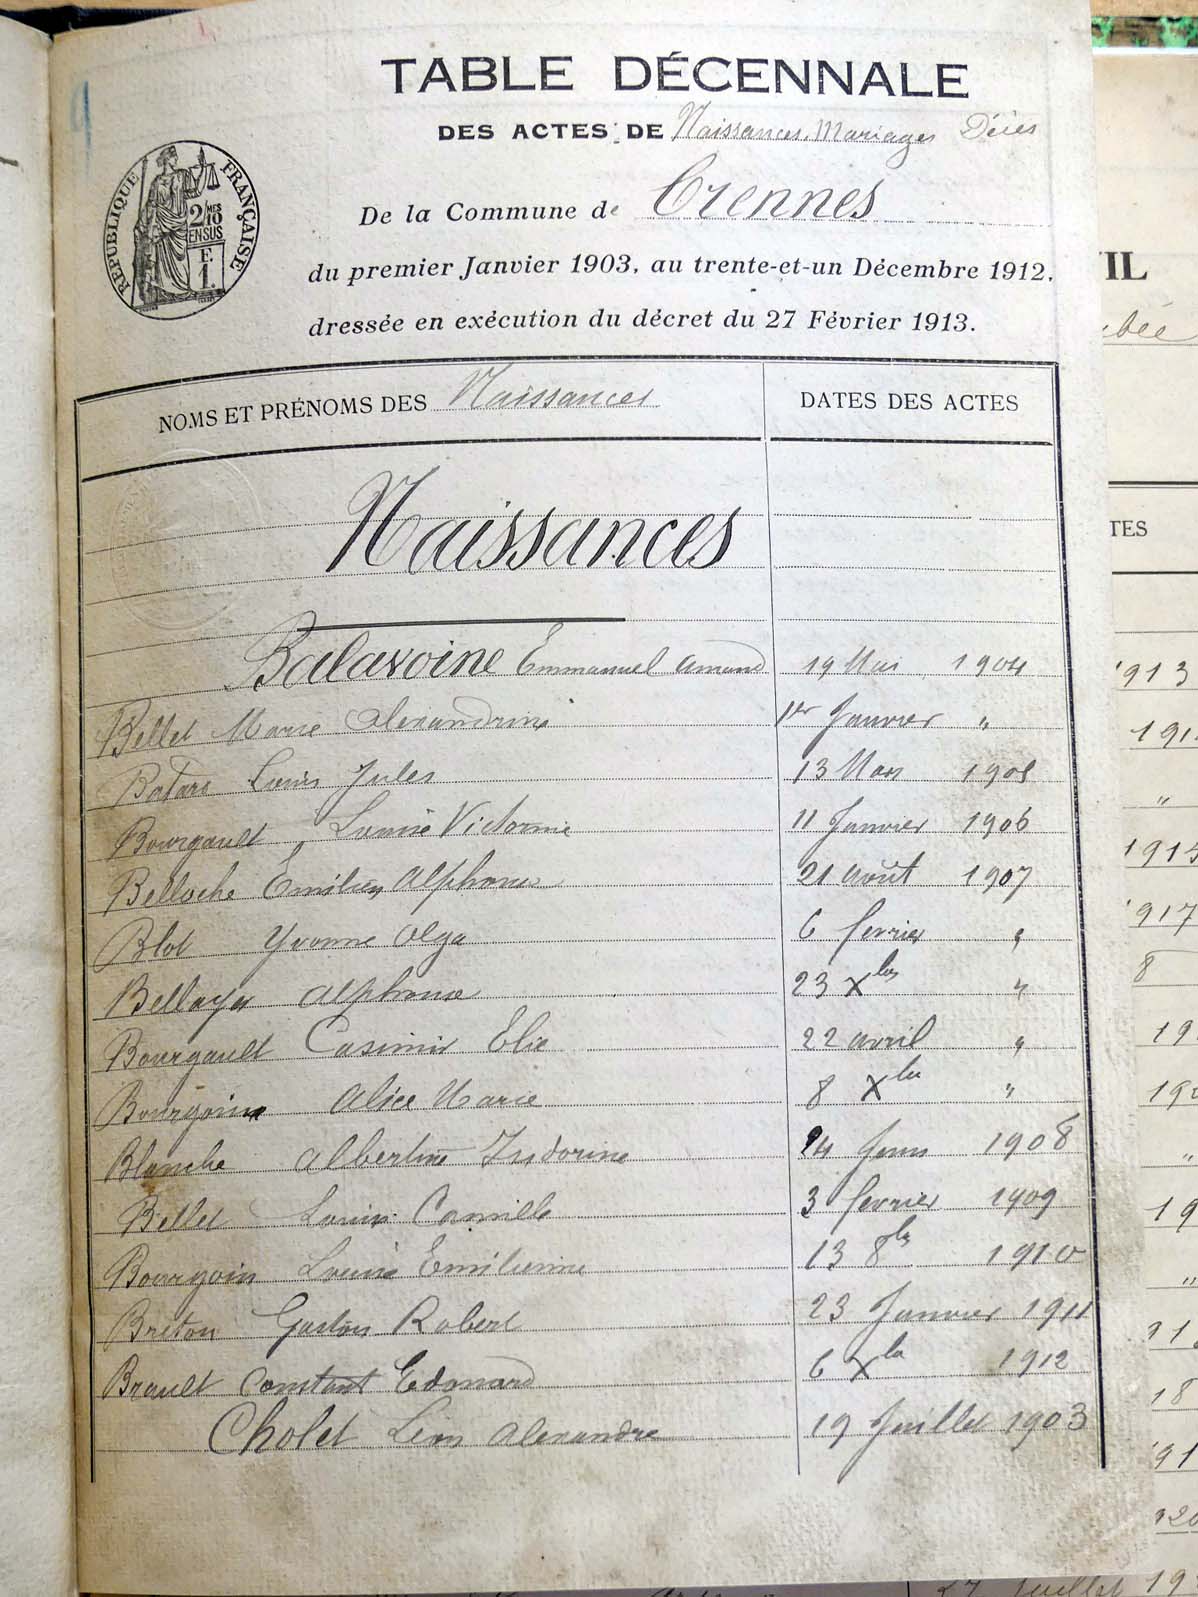 TABLE DÉCENNALE
DES ACTES DE Naissances. Mariages Décès
RÉPUBLIQUE FRANÇAISE
2/10 MES
EN SUS
F.
1.
De la Commune de Crennes
du premier Janvier 1903, au trente-et-un Décembre 1912,
dressée en exécution du décret du 27 Février 1913.
NOMS ET PRÉNOMS DES Naissances DATES DES ACTES
Naissances
Balavoine Emmanuel Amand 19 Mai 1904
Bellet Marie Alexandrine 1er Janvier "
Louis Jules 13 Mars 1905
Bourgault Louise Victorine 11 Janvier 1906
Belloche Emilien Alphonse 21 août 1907
Blot Yvonne Olga 6 fevrier "
Alphonse 23 Xbre "
Bourgault Casimir Elie 22 avril "
Bourgoin Alice Marie 8 Xbre "
Blanche Albertine Isidorine 24 Juin 1908
Bellet Louis Camille 3 fevrier 1909
Bourgoin Louise Emilienne 13 8bre 1910
Breton Gaston Robert 23 Janvier 1911
Brault Constant Edouard 6 Xbre 1912
Cholet Léon Alexandre 19 Juillet 1903
VIL
TES
1913
191
"
1915
1917
8
19
19
"
19
"
91
18
91
920
27 Juillet 19